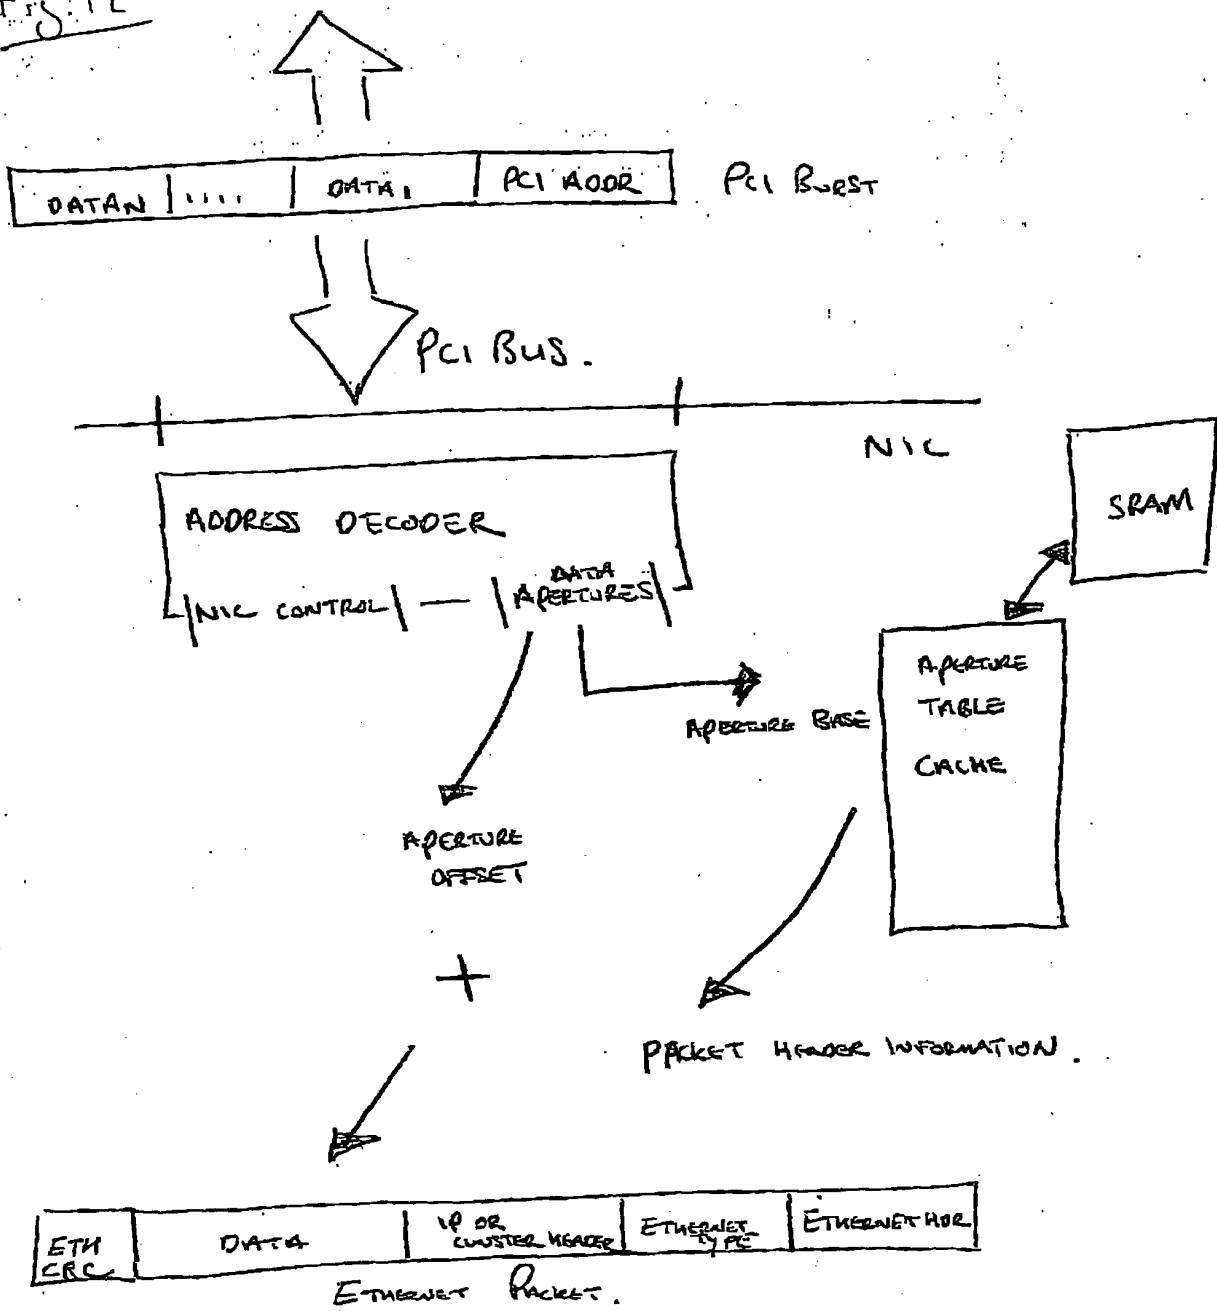 Fig. 12
DATAN | .... | DATA, | PCI ADDR
PCI BURST
PCI BUS.
NIC
SRAM
ADDRESS DECODER
NIC CONTROL — DATA
APERTURES
APERTURE
TABLE
CACHE
APERTURE BASE
APERTURE
OFFSET
+
PACKET HEADER INFORMATION.
ETH
CRC
DATA
IP OR
CLUSTER HEADER
ETHERNET
TYPE
ETHERNET HDR
ETHERNET PACKET.